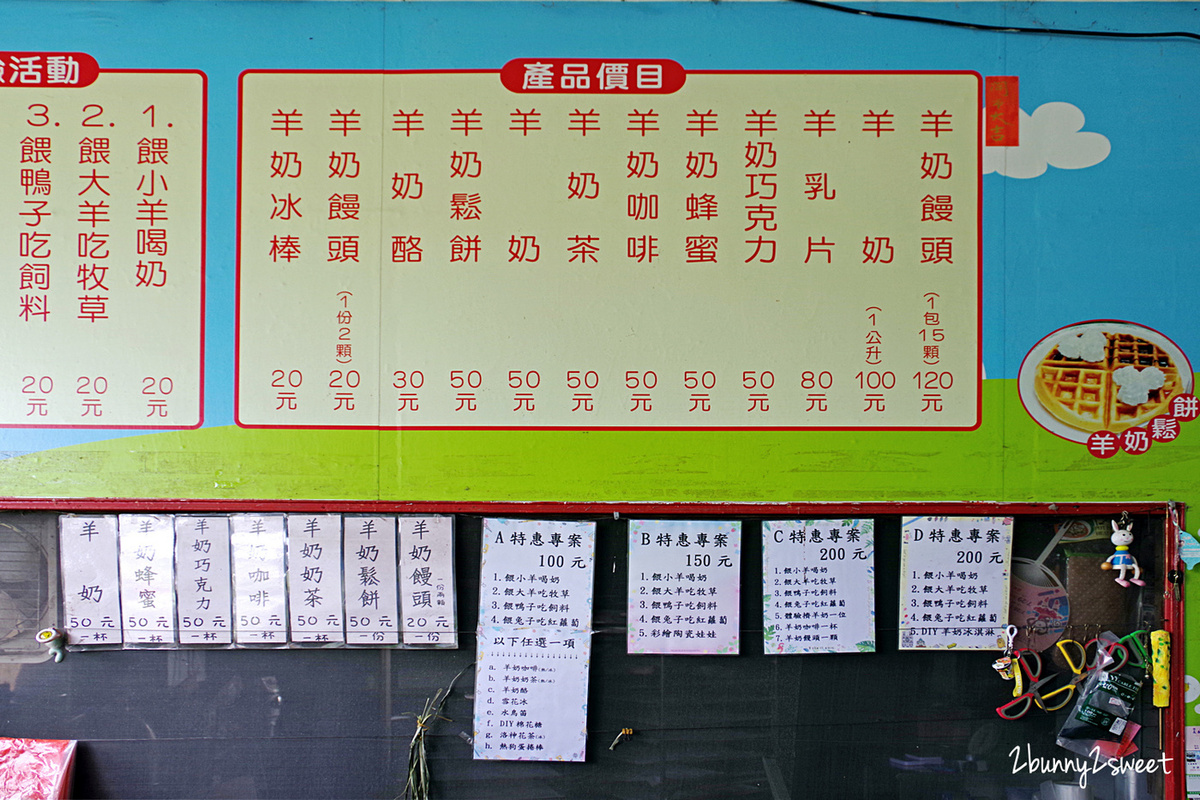 驗活動
1.餵小羊喝奶 20元
2.餵大羊吃牧草 20元
3.餵鴨子吃飼料 20元
產品價目
羊奶饅頭(1包15顆) 120元
羊奶(1公升) 100元
羊乳片 80元
羊奶巧克力 50元
羊奶蜂蜜 50元
羊奶咖啡 50元
羊奶茶 50元
羊奶 50元
羊奶鬆餅 50元
羊奶酪 30元
羊奶饅頭(1份2顆) 20元
羊奶冰棒 20元
羊奶鬆餅
羊奶 50元 一杯
羊奶蜂蜜 50元 一杯
羊奶巧克力 50元 一杯
羊奶咖啡 50元 一杯
羊奶奶茶 50元 一杯
羊奶鬆餅 50元 一份
羊奶饅頭 一份兩顆 20元 一份
A 特惠專案
100 元
1. 餵小羊喝奶
2. 餵大羊吃牧草
3. 餵鴨子吃飼料
4. 餵兔子吃紅蘿蔔
以下任選一項
a. 羊奶咖啡
b. 羊奶奶茶
c. 羊奶酪
d. 雪花冰
e. 水鳥笛
f. DIY 棉花糖
g. 洛神花茶
h. 熱狗蛋捲棒
B 特惠專案
150 元
1. 餵小羊喝奶
2. 餵大羊吃牧草
3. 餵鴨子吃飼料
4. 餵兔子吃紅蘿蔔
5. 彩繪陶瓷娃娃
C 特惠專案
200 元
1. 餵小羊喝奶
2. 餵大羊吃牧草
3. 餵鴨子吃飼料
4. 餵兔子吃紅蘿蔔
5. 體驗擠羊奶一位
6. 羊奶咖啡一杯
7. 羊奶饅頭一顆
D 特惠專案
200 元
1. 餵小羊喝奶
2. 餵大羊吃牧草
3. 餵鴨子吃飼料
4. 餵兔子吃紅蘿蔔
5. DIY 羊奶冰淇淋
2bunny2sweet